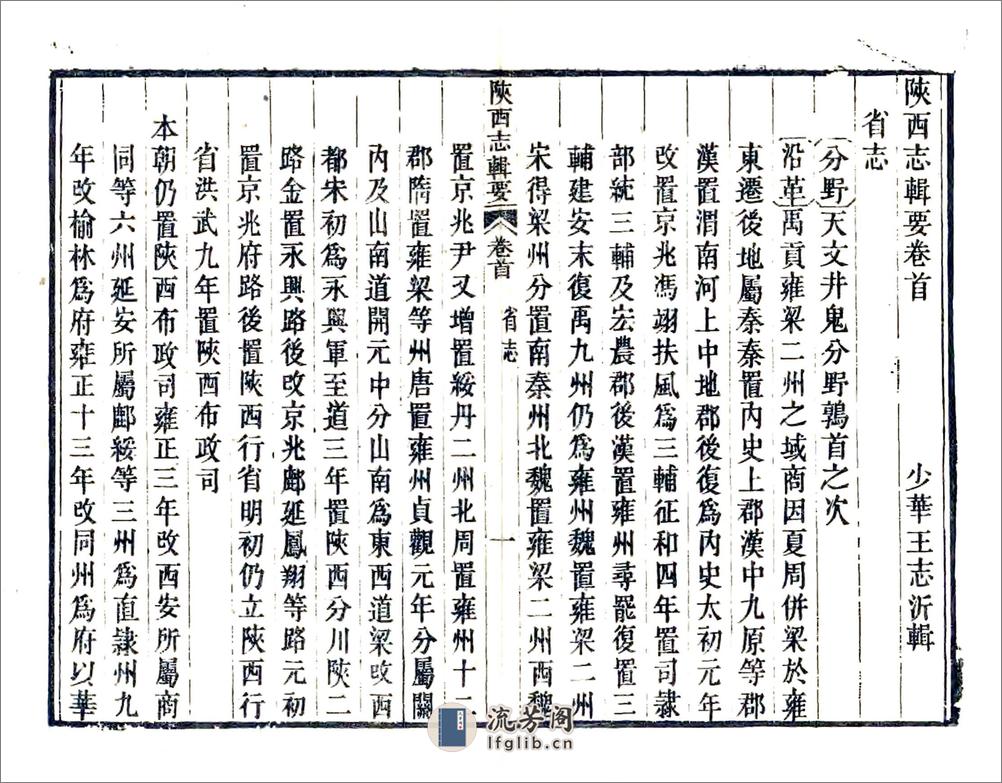 陝西志輯要卷首　少華王志沂輯
省志
分野天文井鬼分野鶉首之次
沿革禹貢雍梁二州之域商因夏周併梁於雍
東遷後地屬秦秦置內史上郡漢中九原等郡
漢置渭南河上中地郡後復爲內史太初元年
改置京兆馮翊扶風爲三輔征和四年置司隸
部統三輔及宏農郡後漢置雍州尋罷復置三
輔建安末復禹九州仍爲雍州魏置雍梁二州
宋得梁州分置南秦州北魏置雍梁二州西魏
陝西志輯要　卷首　省志　一
置京兆尹又增置綏丹二州北周置雍州十二
郡隋置雍梁等州唐置雍州貞觀元年分屬關
內及山南道開元中分山南爲東西道梁改西
都宋初爲永興軍至道三年置陝西分川陝二
路金置永興路後改京兆鄜延鳳翔等路元初
置京兆府路後置陝西行省明初仍立陝西行
省洪武九年置陝西布政司
本朝仍置陝西布政司雍正三年改西安所屬商
同等六州延安所屬鄜綏等三州爲直隸州九
年改榆林爲府雍正十三年改同州爲府以華
流芳阁
lfglib.cn